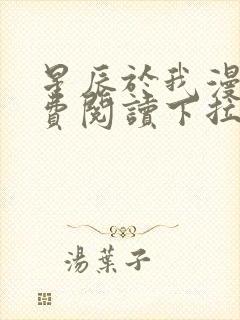 星辰於我漫
費閱讀下拉
湯葉子